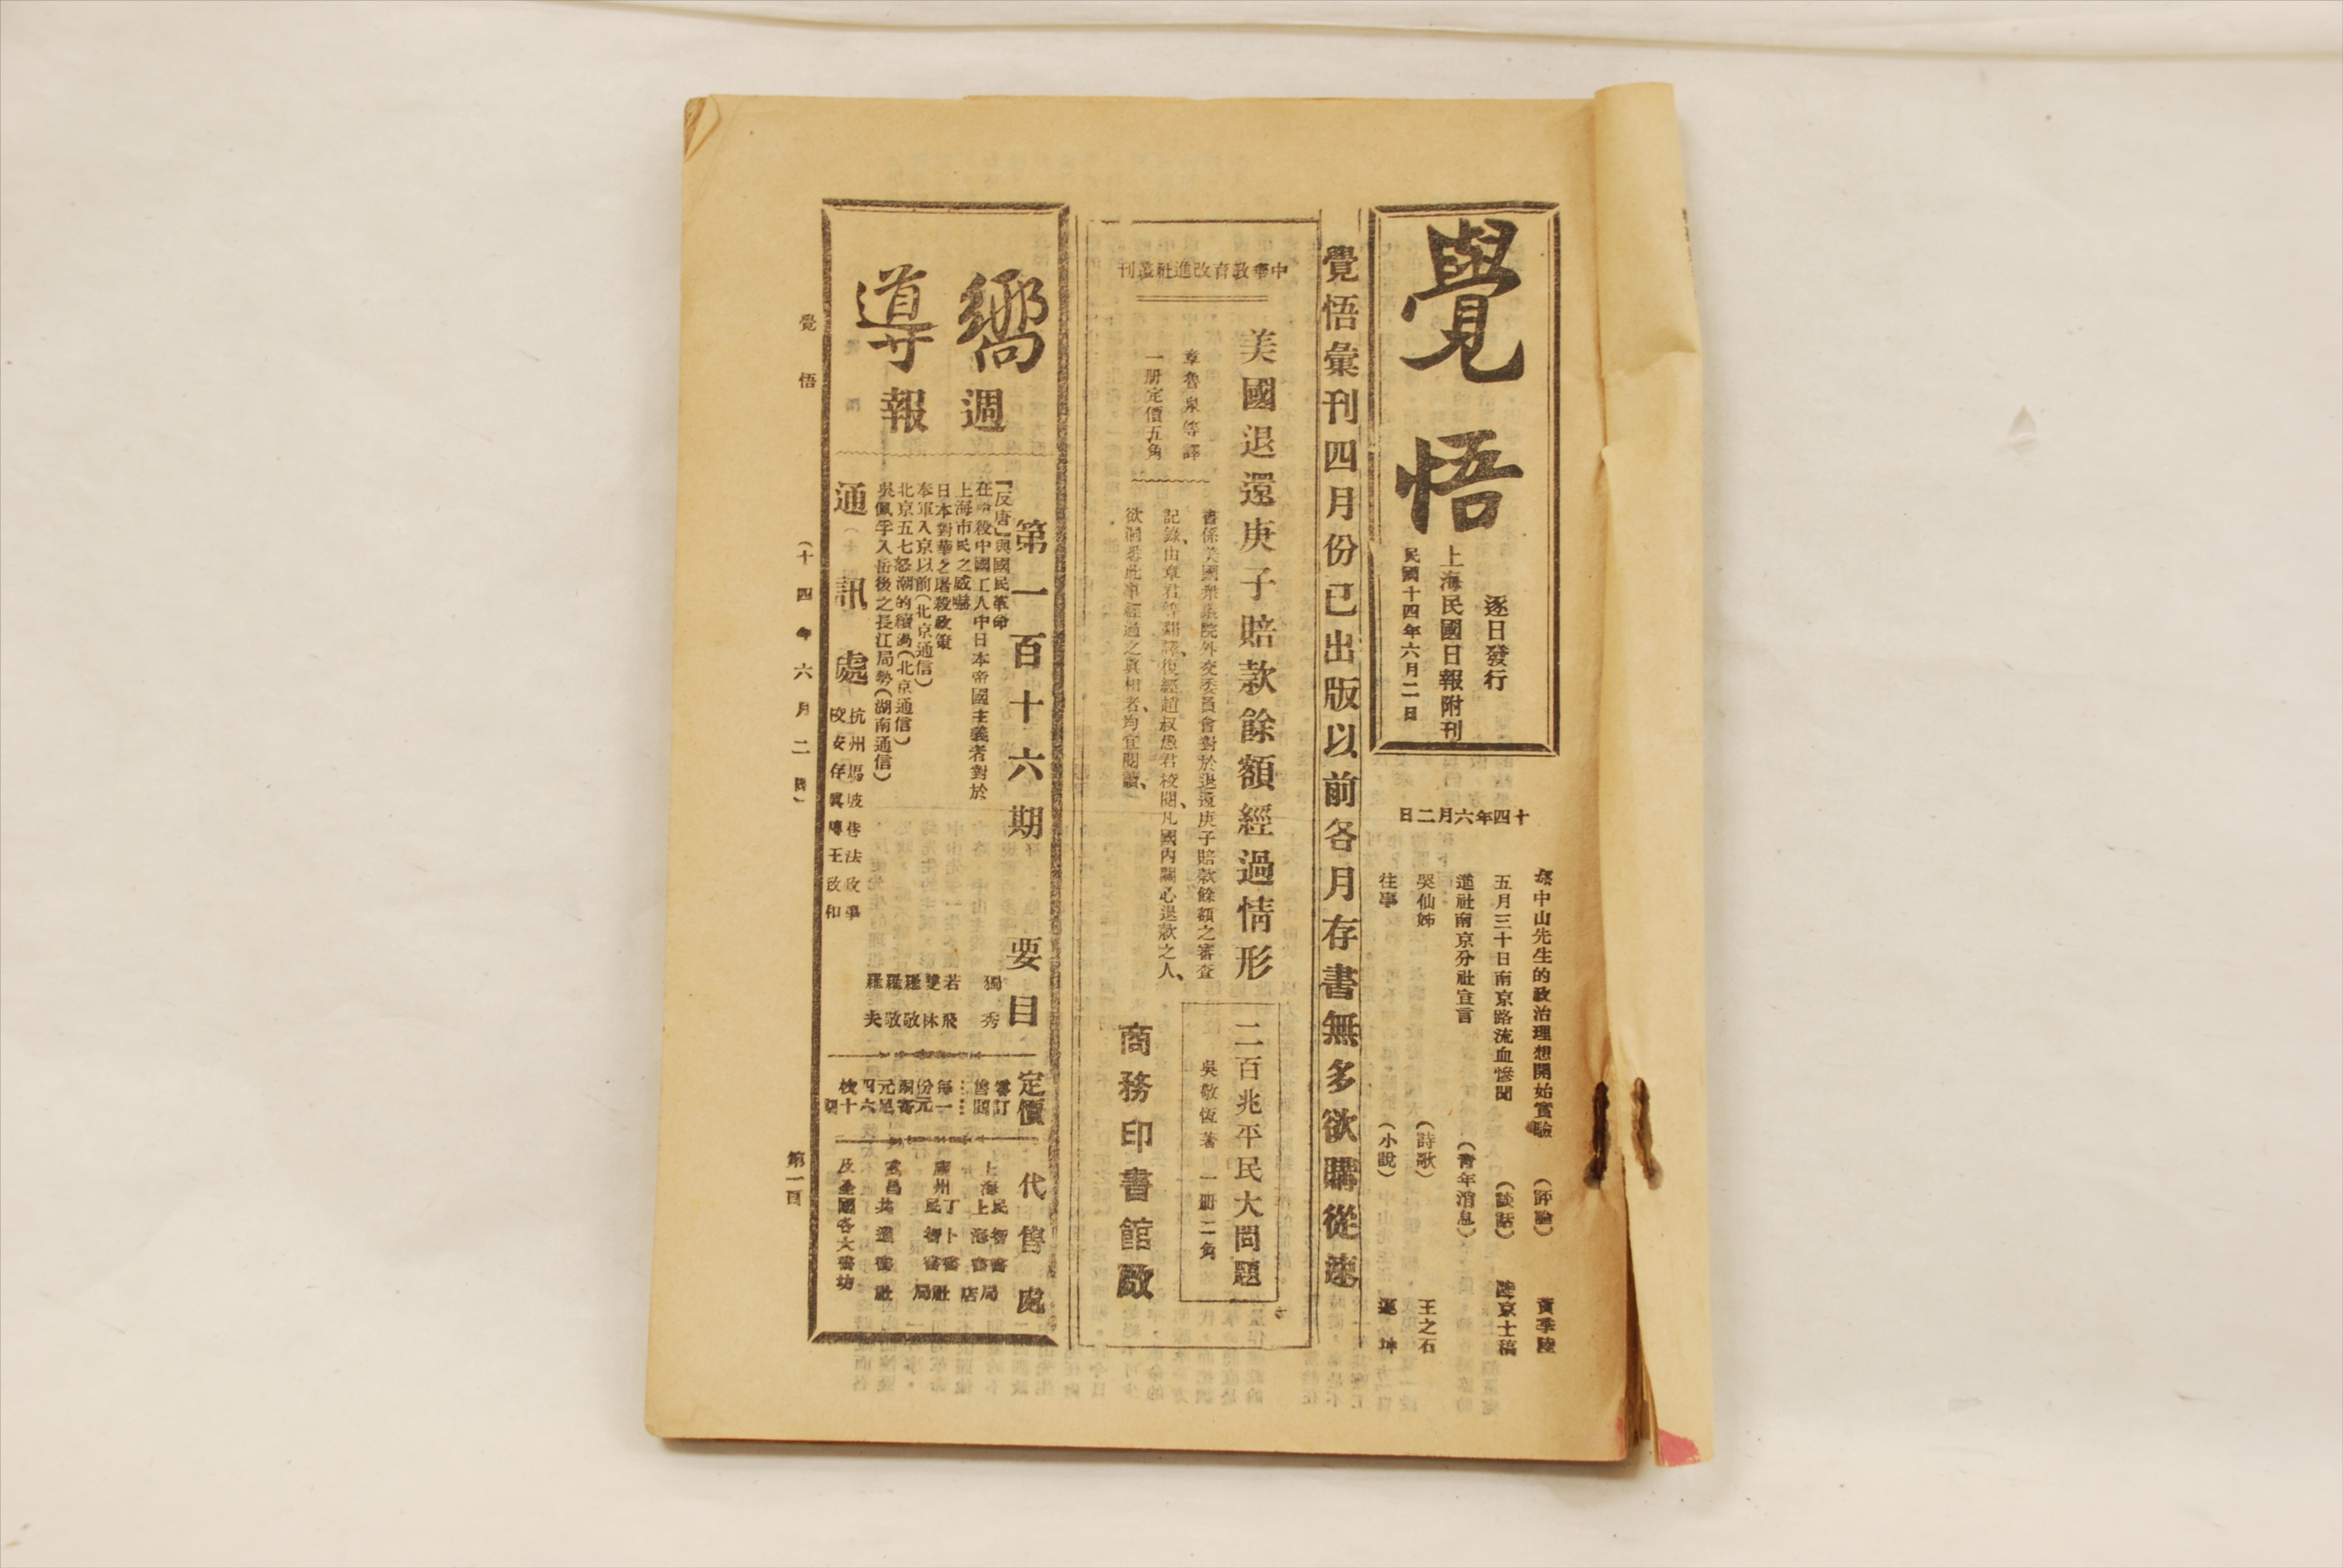 覺悟
逐日發行
上海民國日報附刊
民國十四年六月二日
十四年六月二日
中山先生的政治理想開始實驗 (評論) 黃季陸
五月三十日南京路流血慘聞 (談話) 陸京士稿
進社南京分社宣言 (青年消息)
哭仙姊 (詩歌) 王之石
往事 (小說) 運坤
覺悟彙刊四月份已出版以前各月存書無多欲購從速
中華教育改進社叢刊
美國退還庚子賠款餘額經過情形
章魯泉等譯
一册定價五角
書係美國衆議院外交委員會對於退還庚子賠款餘額之審查
記錄、由章君等翻譯、復經趙叔愚君校閱、凡國內關心退款之人、
欲洞悉此事經過之眞相者、均宜閱讀、
二百兆平民大問題
吳敬恆著 一册二角
商務印書館啟
嚮導
週報
第一百十六期要目
「反唐」與國民革命 獨秀
在槍殺中國工人中日本帝國主義者對於
上海市民之威嚇 若飛
日本對華之屠殺政策 雙林
奉軍入京以前(北京通信) 羅敬
北京五七怒潮的續漲(北京通信) 羅敬
吳佩孚入岳後之長江局勢(湖南通信) 羅夫
通訊處
杭州馬坡巷法政學
校安存眞轉王政和
定價
代售處
上海民智書局
上海書店
廣州丁卜書社
民智書局
武昌共進書社
及全國各大書坊
覺悟
(十四年六月二日)
第一頁